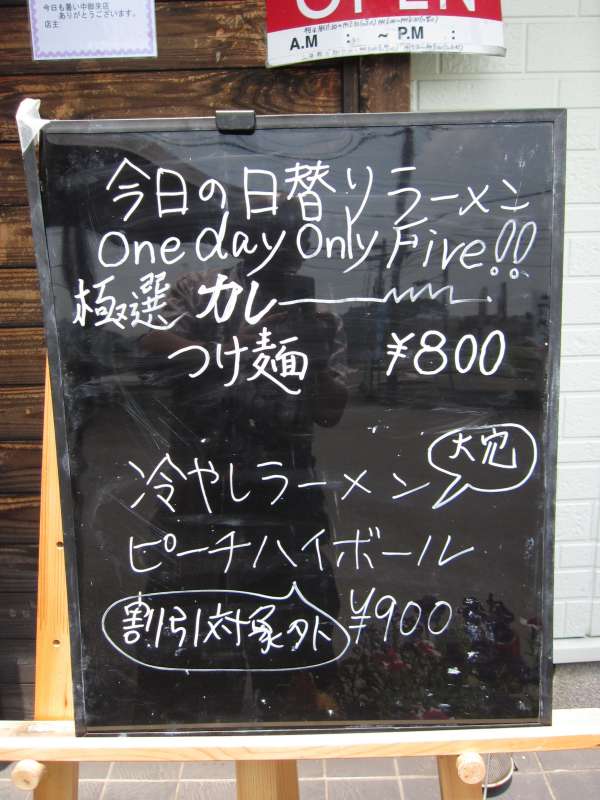 今日も暑い中御来店
ありがとうございます。
店主
OPEN
A.M : ~ P.M :
今日の日替りラーメン
One day Only Five!!
極選 カレー
つけ麺 ¥800
冷やしラーメン 大穴
ピーチハイボール
割引対象外 ¥900